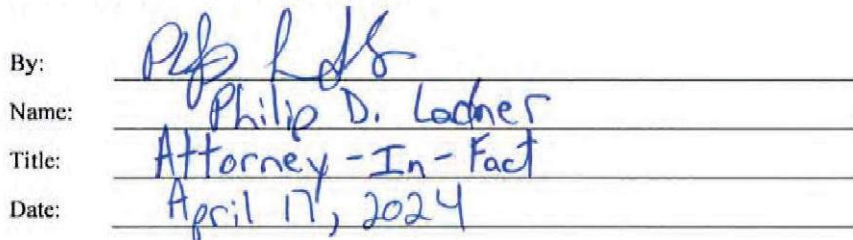 By:
Name: Philip D. Ladner
Title: Attorney-In-Fact
Date: April 17, 2024